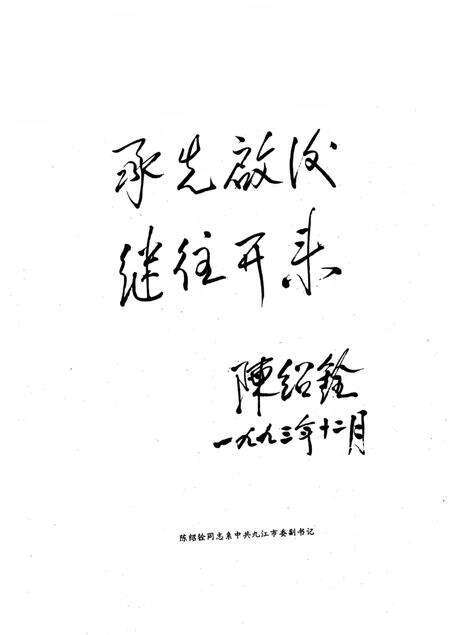 承先啟後
继往开来
陳绍銓
一九九三年十二月
陈绍铨同志系中共九江市委副书记